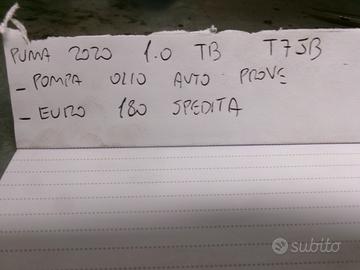 PUMA 2020 1.0 TB T7JB
- POMPA OLIO AUTO PROVE
- EURO 180 SPEDITA
subito